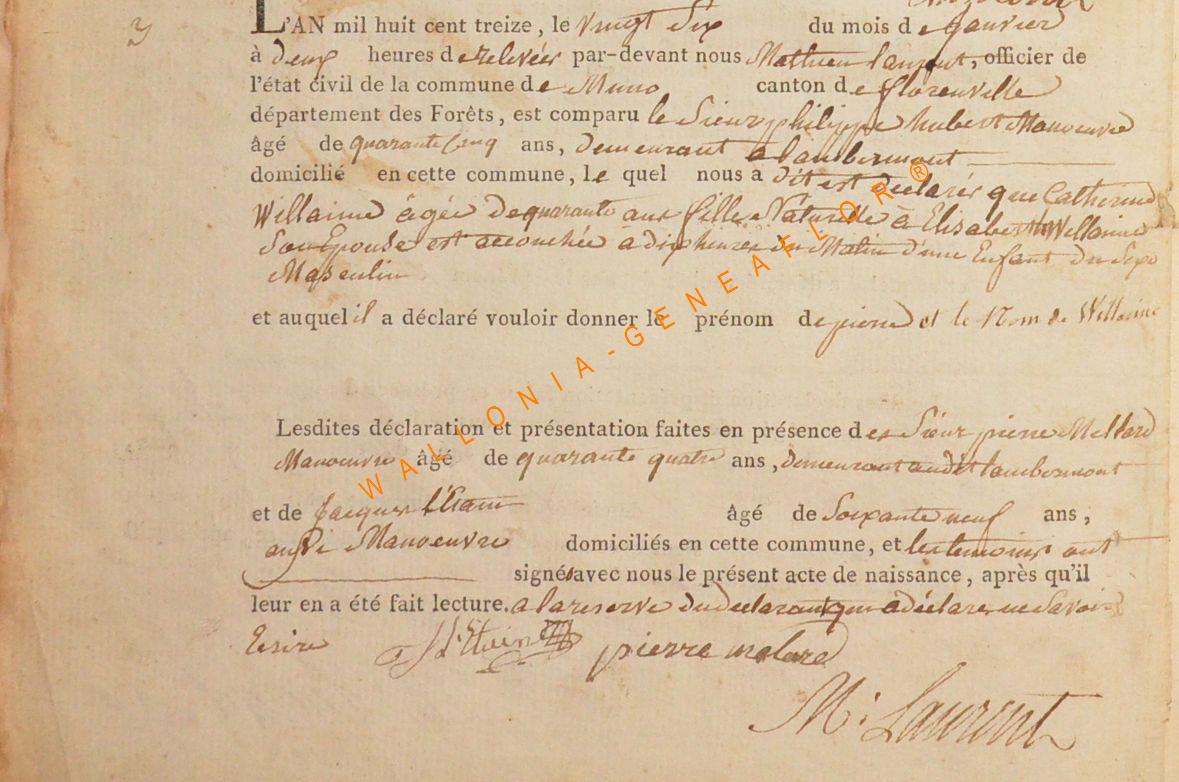 3
L'AN mil huit cent treize, le vingt six du mois de Janvier
à deux heures de relevée par-devant nous Mathieu laurent, officier de
l'état civil de la commune de Muno canton de florenville
département des Forêts, est comparu le Sieur philippe hubert Manoeuvre
âgé de quarante Cinq ans, demeurant a lambermont
domicilié en cette commune, le quel nous a dit est declarés que Catherine
Willaime âgée de quarante ans fille Naturelle à Elisabeth Willaime
Son Epouse est accouchée à dix heures du Matin d'une Enfant du Sexe
Masculin
et auquel il a déclaré vouloir donner le prénom de pierre et le Nom de Willaime
Lesdites déclaration et présentation faites en présence des Sieur pierre Mellard
Manoeuvre âgé de quarante quatre ans, demeurant audit lambermont
et de Jacques l'Etain âgé de Soixante neuf ans,
aussi Manoeuvre domiciliés en cette commune, et les temoins ont
signés avec nous le présent acte de naissance, après qu'il
leur en a été fait lecture. a la reserve du declarant qui a déclare ne Savoir
Ecrire J L'Etain pierre melard
M. Laurent
WALLONIA-GENEAFLOR®